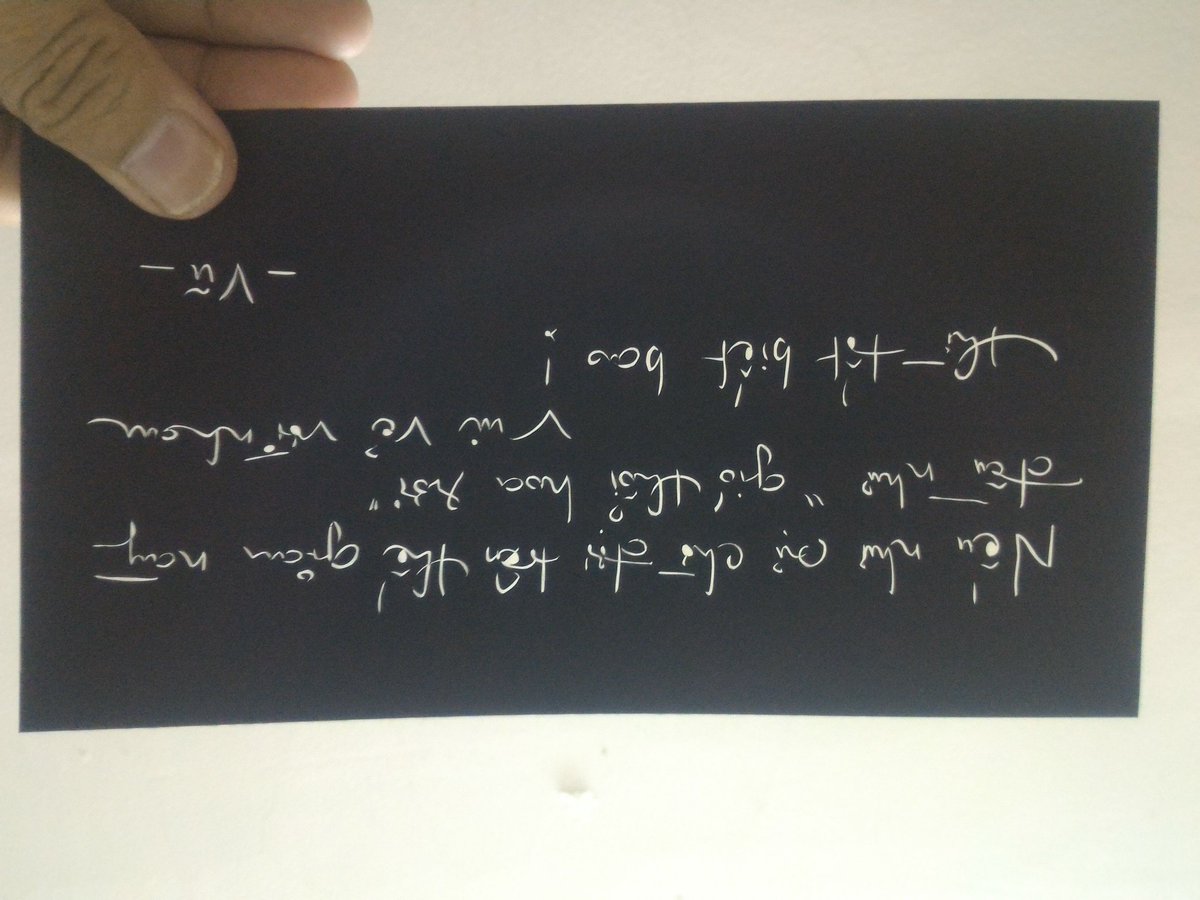 Nếu như sự chờ đợi trên thế gian này
đều như "gió thổi hoa rơi"
Vui vẻ với nhau
thì tốt biết bao !
- Vũ -